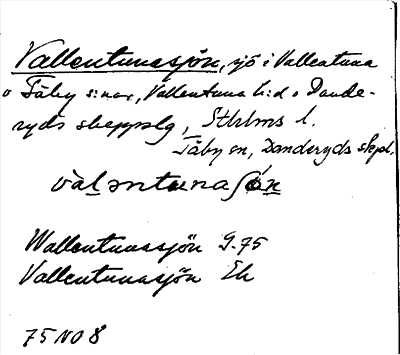 Vallentunasjön, sjö i Vallentuna
o Täby s:nar, Vallentuna h:d o Dande-
ryds skeppslg, Sthlms l.
Täby sn, Danderyds skpl.
Wallentunasjön G. 75
Vallentunasjön Ek
75 NO 8